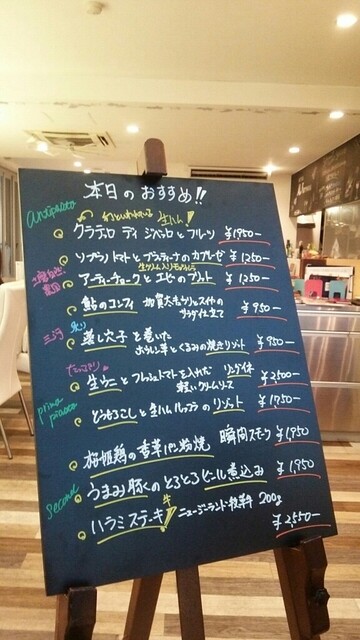 本日のおすすめ!!
antipasto
生ハム
クラテッロ ディ ジベッロとフルーツ ¥1,950-
ソプラノトマトとブラティーナのカプレーゼ ¥1250-
生クリーム入りモッツァレラ
アーティチョークとエビのフリット ¥1250-
鮎のコンフィ ¥950-
サラダ仕立て
三河
蒸し穴子を巻いた
ほうれん草とくるみの焼きリゾット ¥950-
たっぷり
生ウニとフレッシュトマトを入れた ¥2,500-
軽いクリームソース
primo piatto
とうもろこしと生ハム ルッコラのリゾット ¥1,750-
桜姫鶏の香草パン粉焼 瞬間スモーク ¥1,950
second
うまみ豚くのとろとろビール煮込み ¥1,950
牛
ハラミステーキ ニュージーランド牧草牛 200g
¥2,550-